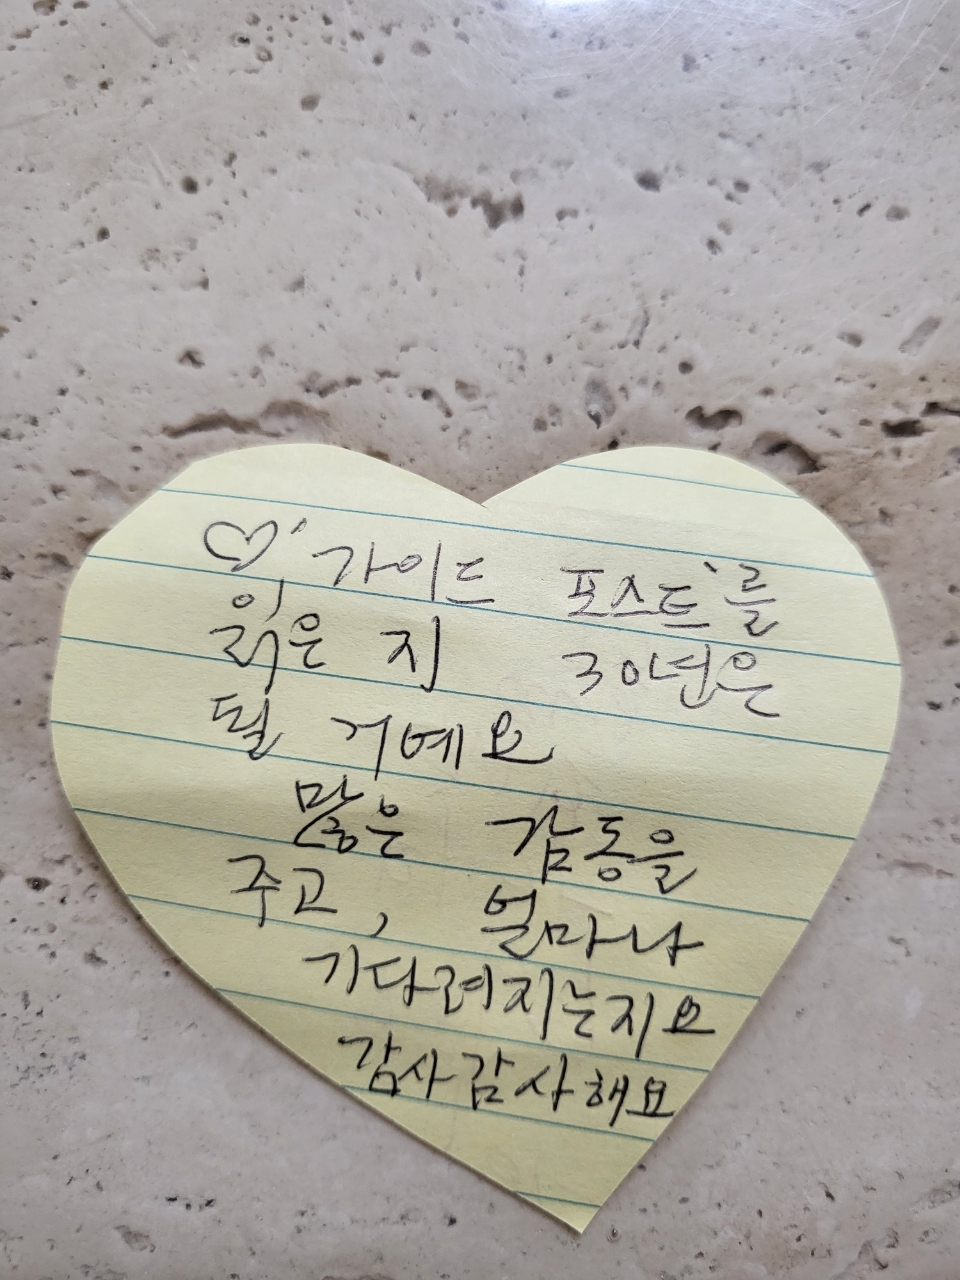 ♡'가이드 포스트'를
읽은 지 30년은
될 거예요
많은 감동을
주고, 얼마나
기다려지는지요
감사감사해요